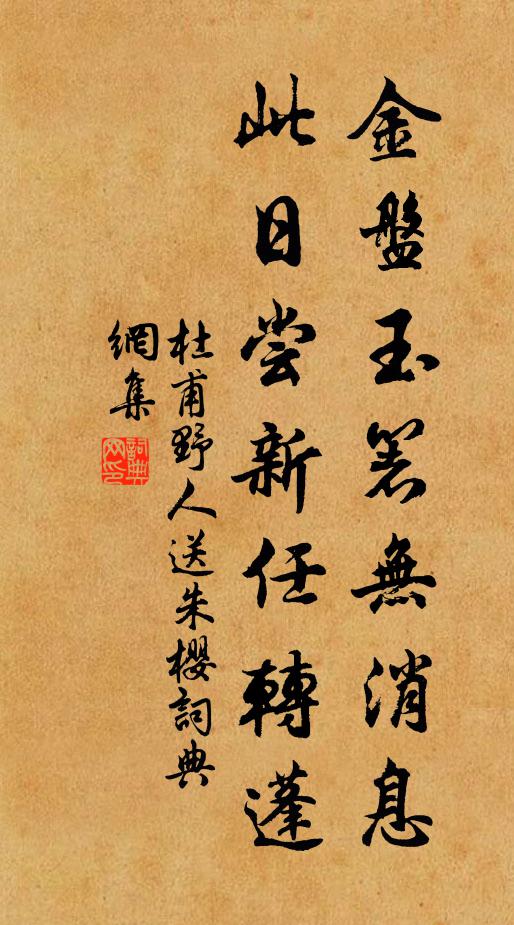 金盤玉箸無消息
此日嘗新任轉蓬
杜甫野人送朱櫻詞典
網集
詞典網印